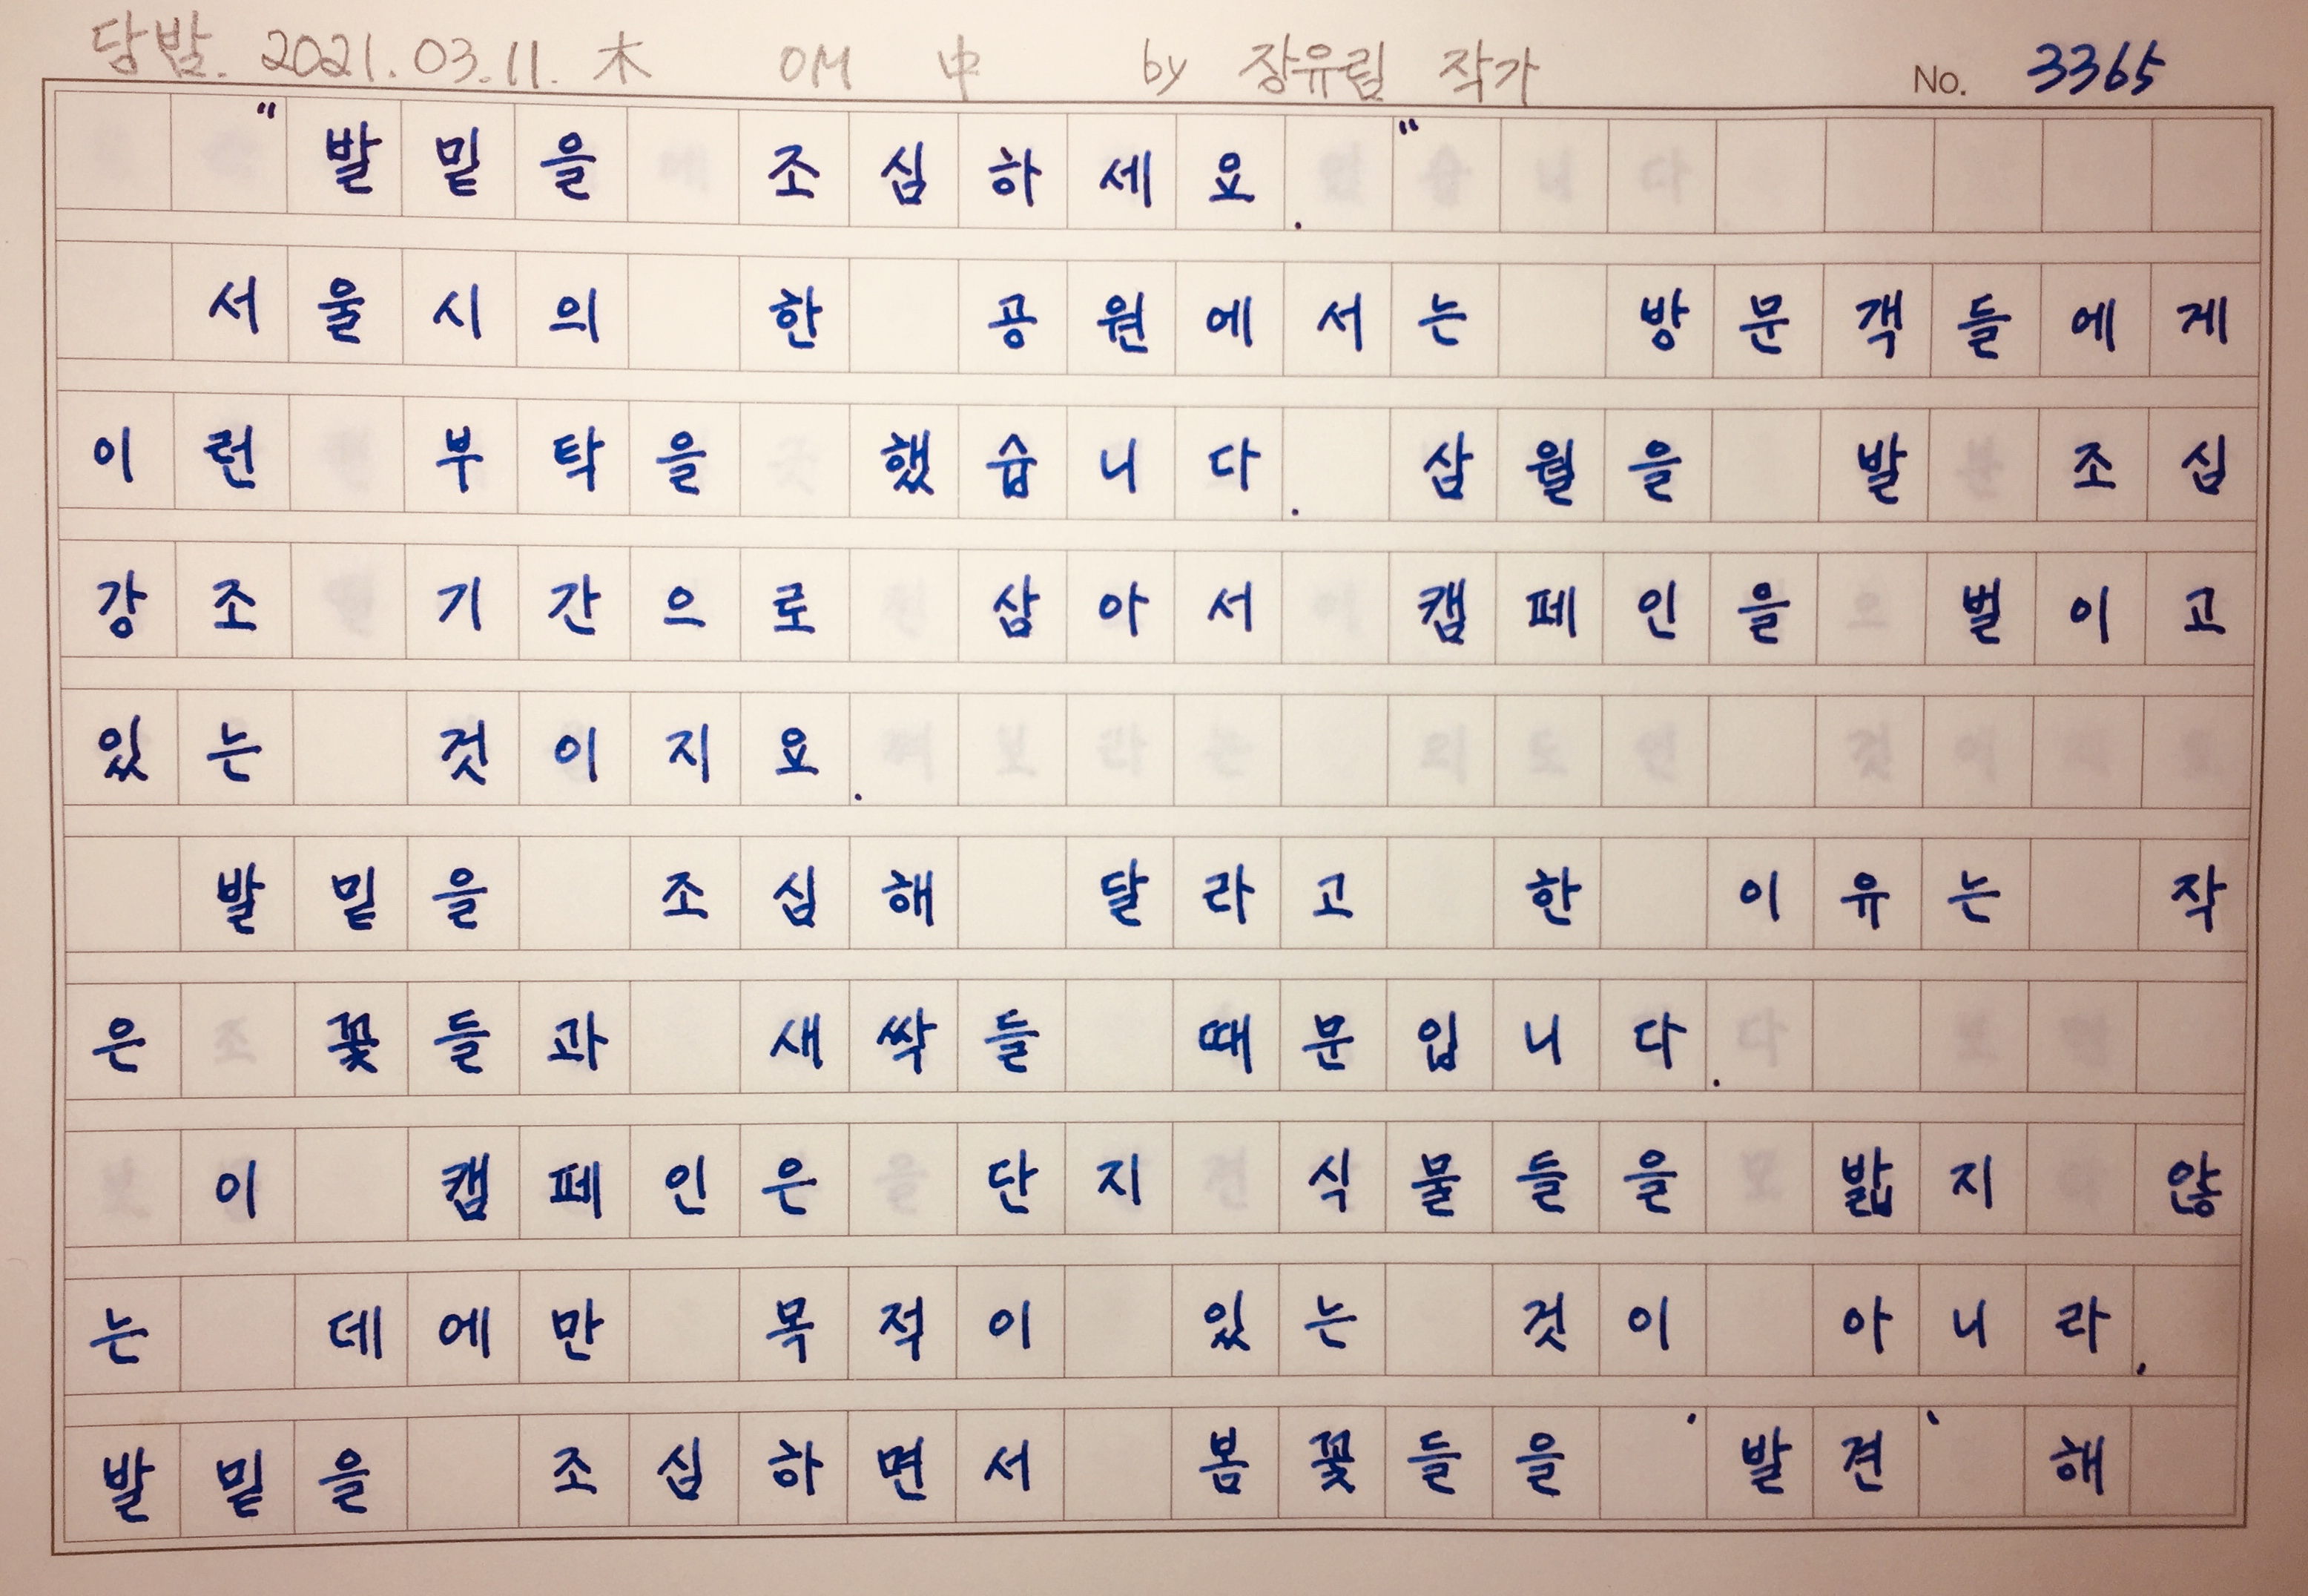 담발. 2021.03.11. 木 OM 中 by 장유림 작가 No. 3365
“발밑을 조심하세요.”
서울시의 한 공원에서는 방문객들에게
이런 부탁을 했습니다. 삼월을 발 조심
강조 기간으로 삼아서 캠페인을 벌이고
있는 것이지요.
발밑을 조심해 달라고 한 이유는 작
은 꽃들과 새싹들 때문입니다.
이 캠페인은 단지 식물들을 밟지 않
는 데에만 목적이 있는 것이 아니라,
발밑을 조심하면서 봄꽃들을 ‘발견’ 해